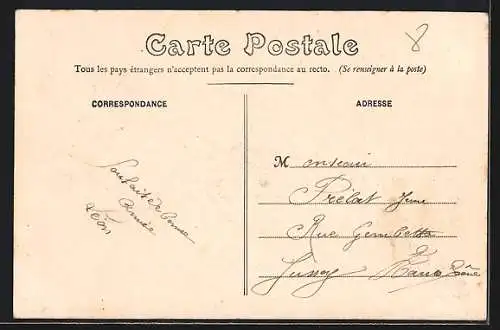 8
Carte Postale
Tous les pays étrangers n'acceptent pas la correspondance au recto. (Se renseigner à la poste)
CORRESPONDANCE
ADRESSE
Souhait de bonne
année
Léon
Monsieur
Prélat Jeune
Rue Gambetta
Jussey Haute Saône